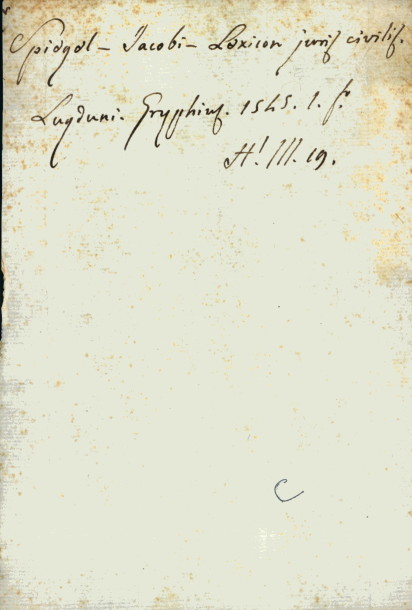 Spiegel – Jacobi – Lexicon juris civilis.
Lugduni. Gryphius. 1545. 1. f.
H! III. 19.
C